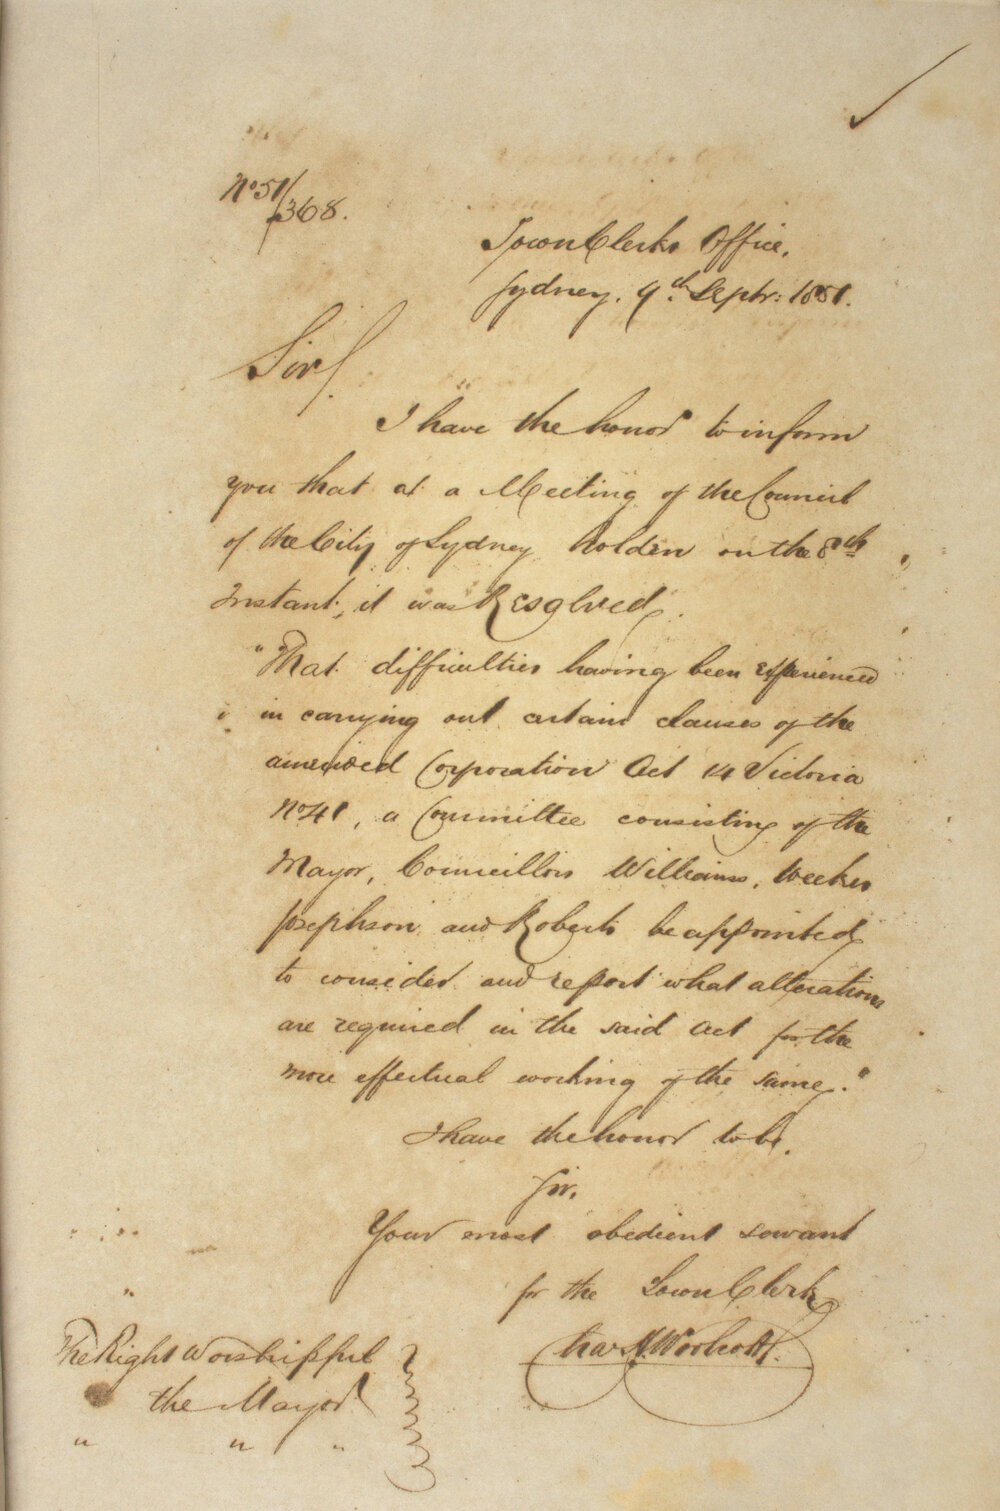 No 51/368.
Town Clerks Office,
Sydney. 9th Septr: 1851.
Sir/
I have the honor to inform
you that at a Meeting of the Council
of the City of Sydney holden on the 8th
Instant, it was Resolved,
"That difficulties having been experienced
in carrying out certain clauses of the
amended Corporation Act 14 Victoria
No 41, a Committee consisting of the
Mayor, Councillors Williams, Weekes
Josephson and Roberts be appointed
to consider and report what alterations
are required in the said Act for the
more effectual working of the same."
I have the honor to be,
Sir,
Your most obedient servant
for the Town Clerk
Chas H. Woolcott.
The Right Worshipful
the Mayor
" " "